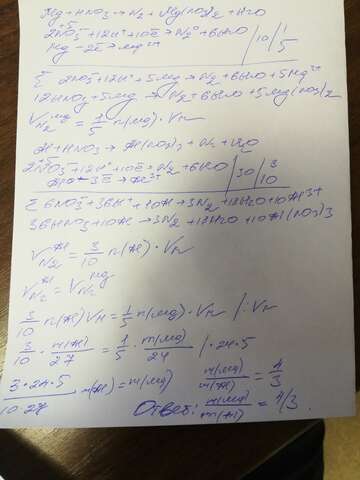 Mg + HNO3 → N2 + Mg(NO3)2 + H2O
2NO3⁻ + 12H⁺ + 10ē → N2⁰ + 6H2O | 10 | 1
Mg - 2ē → Mg²⁺ | 5
Σ 2NO3⁻ + 12H⁺ + 5Mg → N2 + 6H2O + 5Mg²⁺
12HNO3 + 5Mg → N2 + 6H2O + 5Mg(NO3)2
V N2 Mg = 1/5 n(Mg) · Vm
Al + HNO3 → Al(NO3)3 + N2 + H2O
2NO3⁻ + 12H⁺ + 10ē → N2 + 6H2O | 30 | 3
Al⁰ - 3ē → Al³⁺ | 10
Σ 6NO3⁻ + 36H⁺ + 10Al → 3N2 + 18H2O + 10Al³⁺
36HNO3 + 10Al → 3N2 + 18H2O + 10Al(NO3)3
V N2 Al = 3/10 n(Al) · Vm
V N2 Al = V N2 Mg
3/10 n(Al) Vm = 1/5 n(Mg) · Vm |: Vm
3/10 · m(Al)/27 = 1/5 · m(Mg)/24 | · 24 · 5
3 · 24 · 5 / 10 · 27 · m(Al) = m(Mg) m(Mg)/m(Al) = 4/3
Ответ: m(Mg)/m(Al) = 4/3.